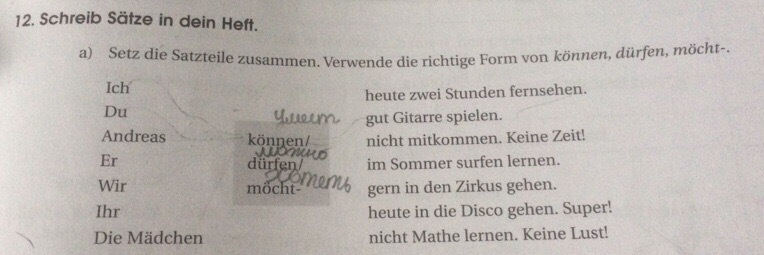 12. Schreib Sätze in dein Heft.
a) Setz die Satzteile zusammen. Verwende die richtige Form von können, dürfen, möcht-.
Ich heute zwei Stunden fernsehen.
Du умеет gut Gitarre spielen.
Andreas können/ nicht mitkommen. Keine Zeit!
можно
Er dürfen/ im Sommer surfen lernen.
хотеть
Wir möcht- gern in den Zirkus gehen.
Ihr heute in die Disco gehen. Super!
Die Mädchen nicht Mathe lernen. Keine Lust!